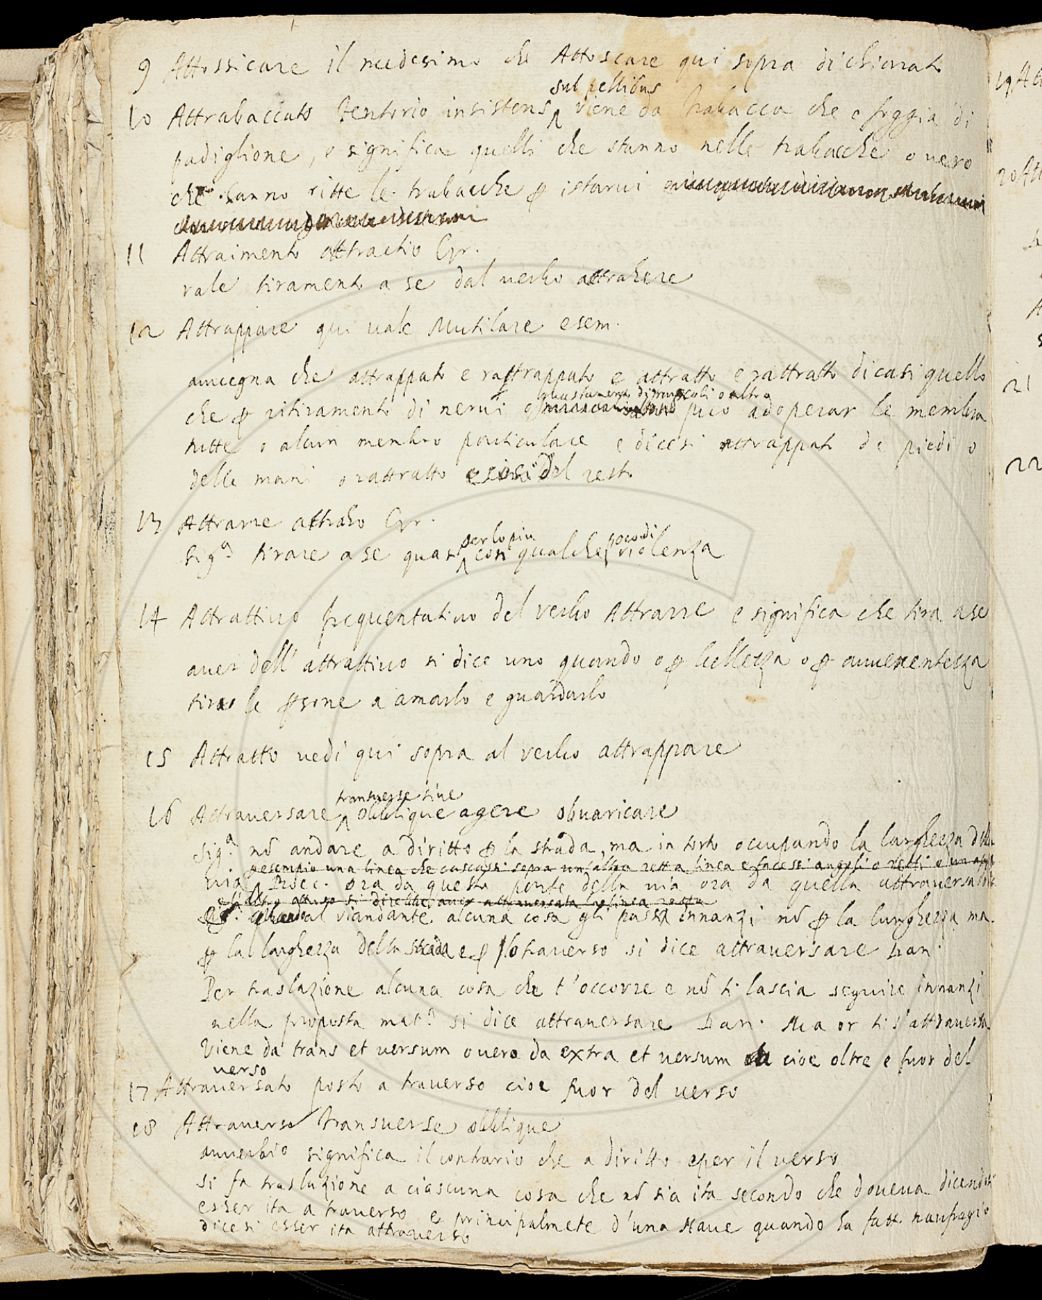 9 Attossicare il medesimo che Attoscare qui sopra dichiarat
sub pellibus
10 Attrabaccato tentorio insistens viene da trabacca che e foggia di
padiglione, e significa quelli che stanno nelle trabacche overo
che fanno ritte le trabacche ꝑ istarvi
11 Attraimento attractio Cyr.
vale tiramento a se dal verbo attrahere
12 Attrappare qui vale Mutilare e sem.
avvegna che attrappato e rattrappato e attratto e rattratto dicasi quello
guastamento di muscoli o altro
che ꝑ ritiramento di nervi o puo adoperar le membra
tutte o alcun membro particulare e dicesi attrappato de piedi o
delle mani o rattratto e cosi del resto
13 Attrarre attraho Cyr.
per lo piu con di
Sigᵃ tirare a se quasi con qualche violenza
14 Attrattivo frequentativo del verbo Attrarre e significa che tira a se
aver dell' attrattivo si dice uno quando o ꝑ bellezza o ꝑ avvenentezza
tira le ꝑsone a amarlo e guardarlo
15 Attratto vedi qui sopra al verbo attrappare
transverse sive
16 Attraversare oblique agere obvaricare
Sigᵃ nō andare a diritto ꝑ la strada, ma in torto occupando la larghezza della
peresempio una linea che cascassi sopra un'altra retta linea e facessi angoli o retti o
via Bocc. ora da questa ponte della via ora da quella attraversa
si direbbe aver attraversata la linea retta
Quando al viandante alcuna cosa gli passa innanzi nō ꝑ la lunghezza ma
ꝑ la larghezza della strada e ꝑ lo traverso si dice attraversare Dan.
Per traslazione alcuna cosa che t'occorre e nō ti lascia seguire innanzi
nella proposta matᵃ si dice attraversare Dan. Ma or ti s'attraversa
Viene da trans et versum overo da extra et versum cioe oltre e fuor del
verso
17 Attraversato posto a traverso cioe fuor del verso
18 Attraverso transverse oblique
avverbio significa il contrario che a diritto e per il verso
si fa traslazione a ciascuna cosa che nō sia ita secondo che doveva dicendosi
esser ita a traverso e principalmēte d'una Nave quando ha fatto naufragio
dicesi esser ita attraverso
19 At
20 Att
21
22